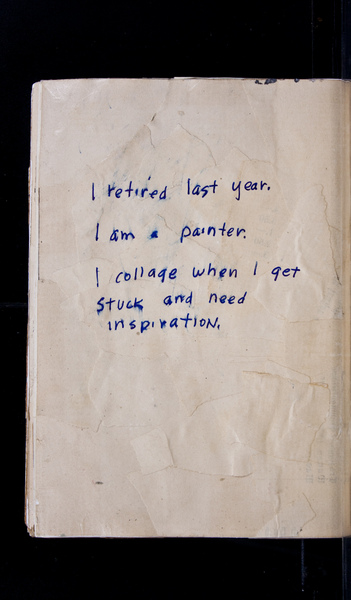 I retired last year.
I am a painter.
I collage when I get
stuck and need
inspiration.